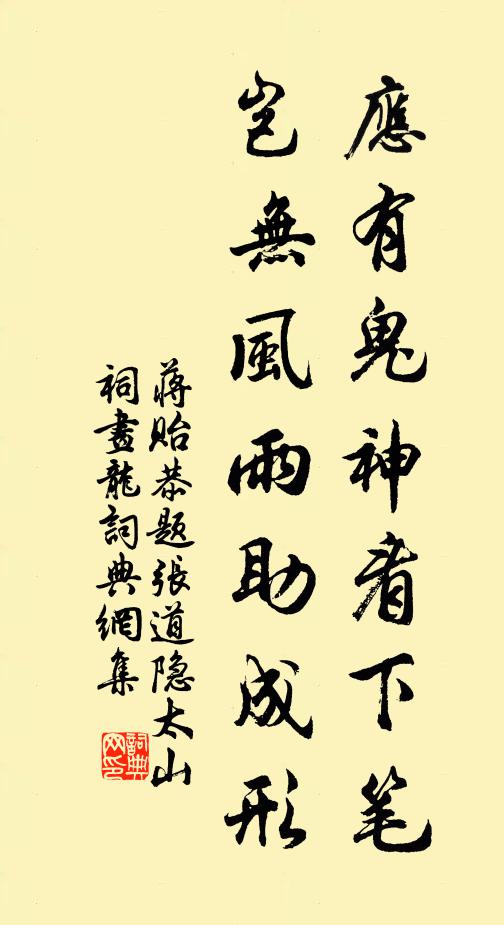 應有鬼神看下笔
豈無風雨助成形
蔣貽恭题張道隐太山
祠畫龍詞典網集
詞典
网印